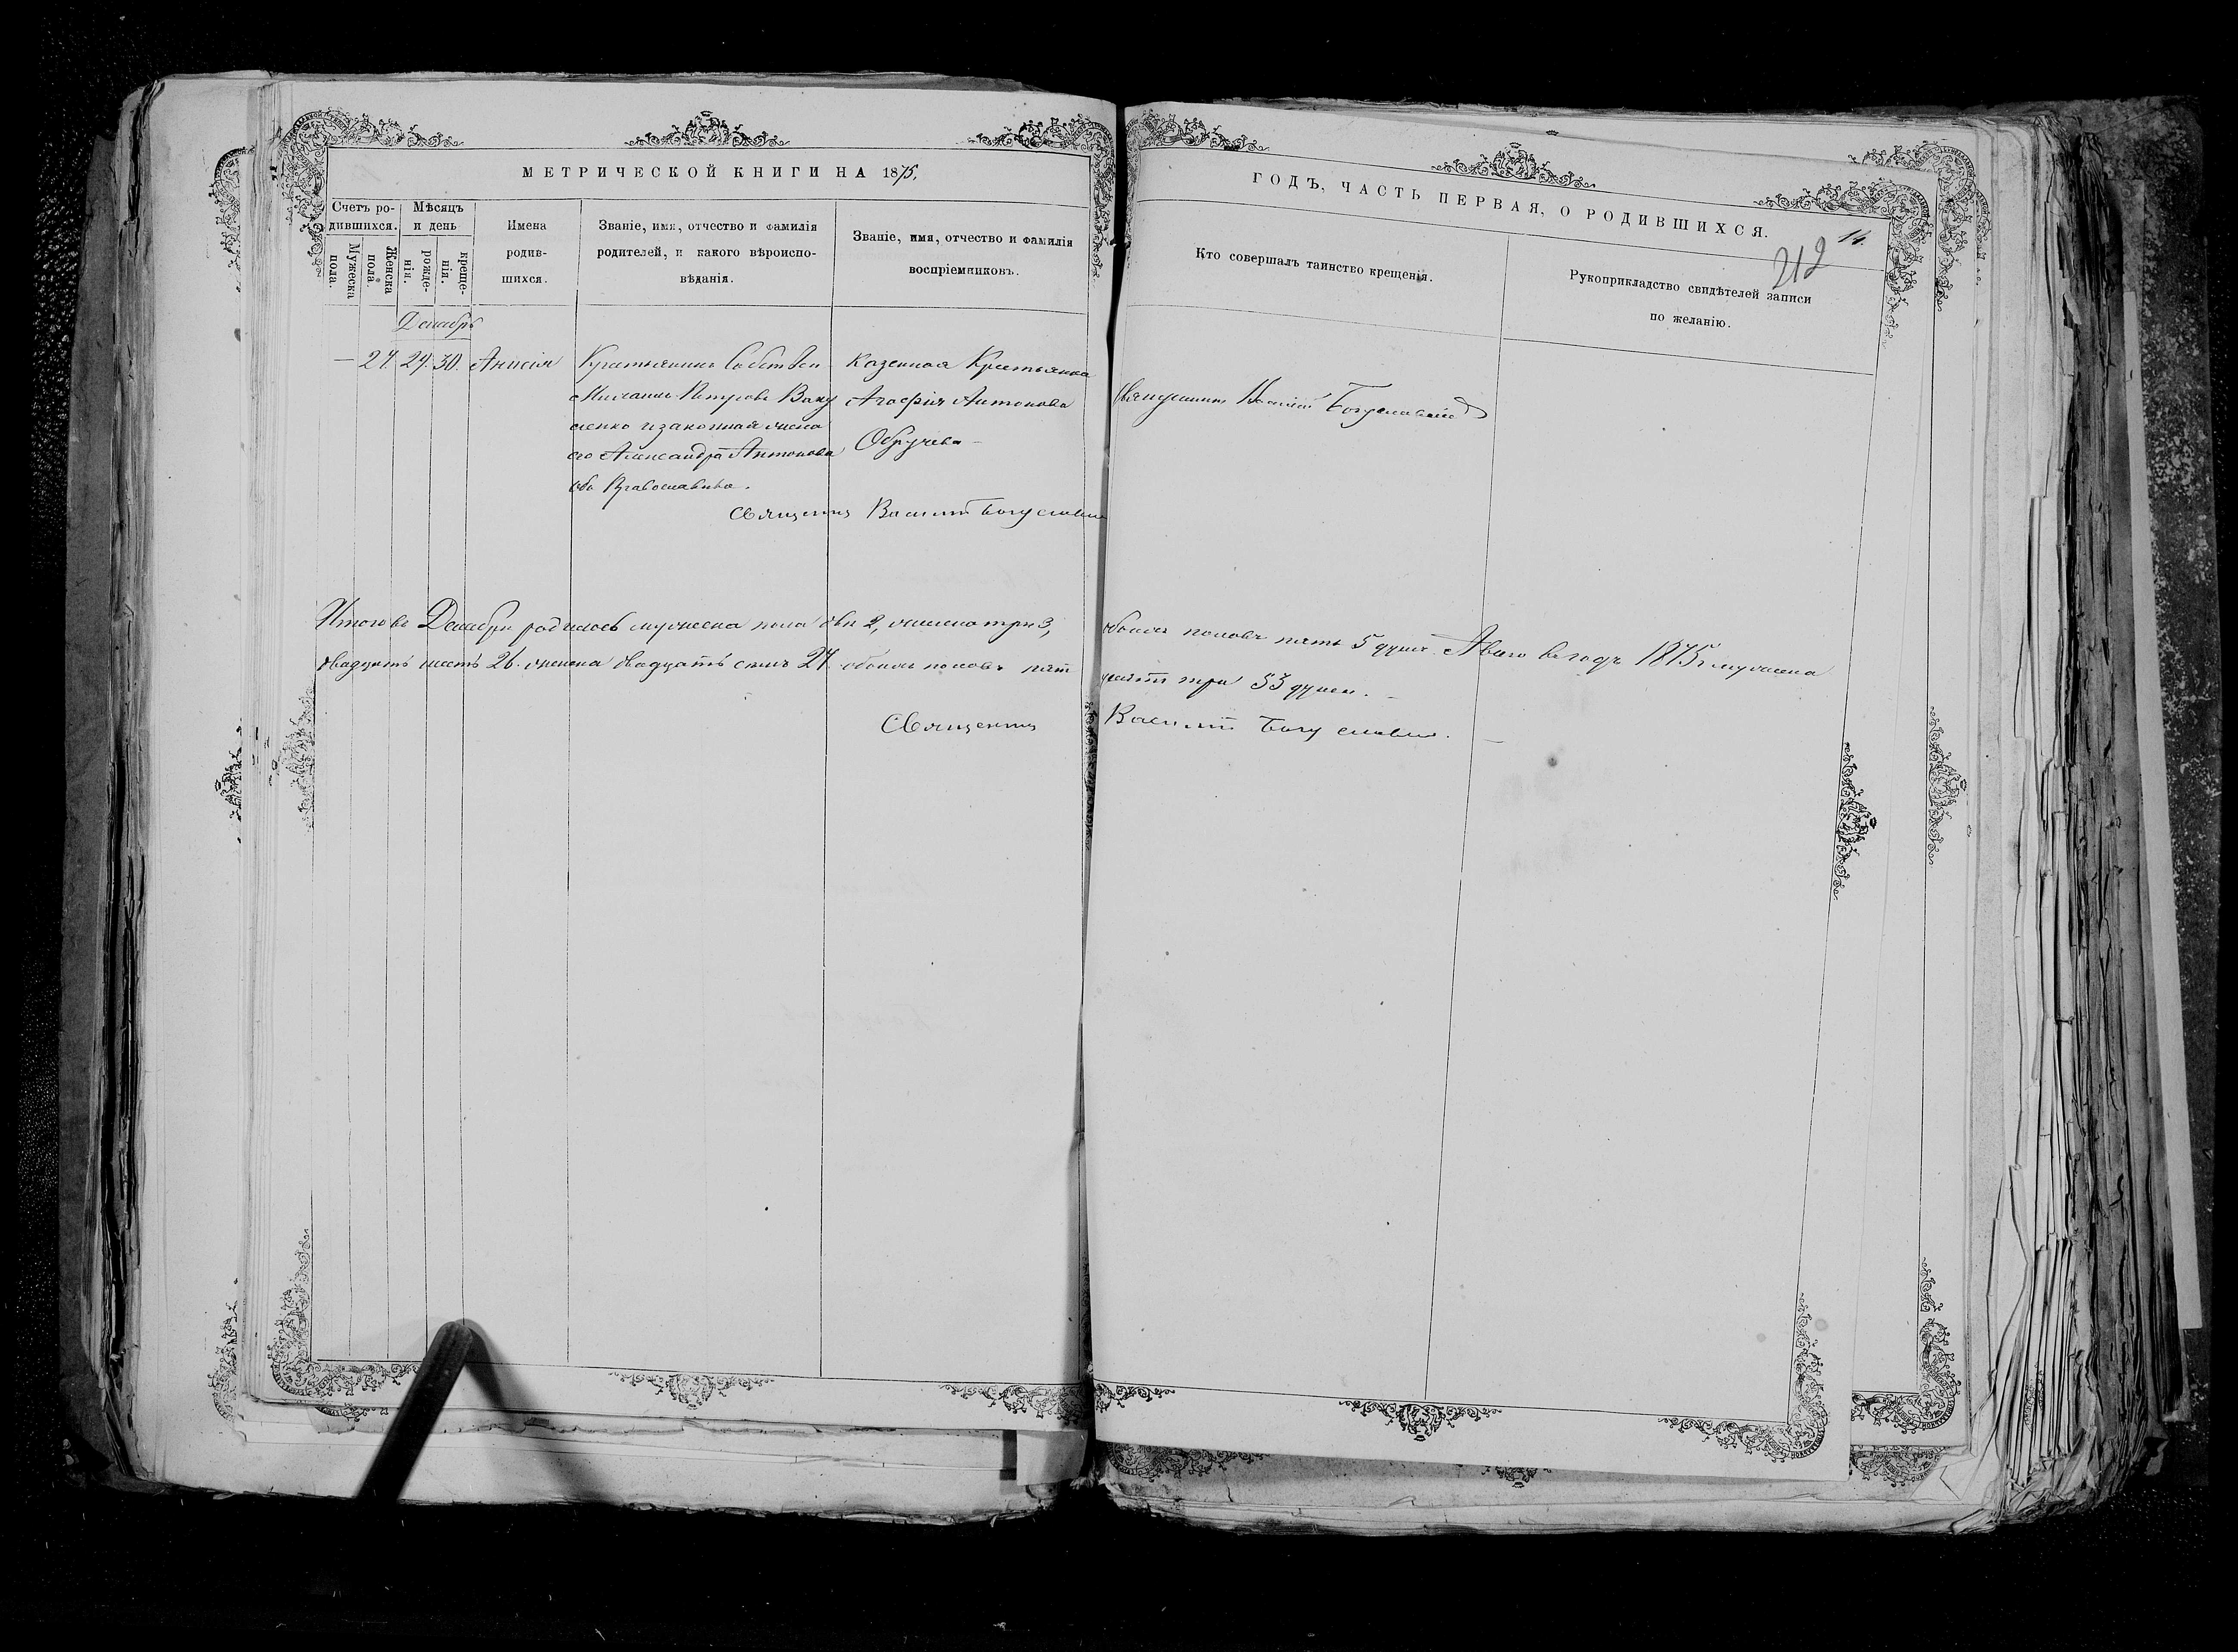 МЕТРИЧЕСКОЙ КНИГИ НА 1875.
ГОДЪ, ЧАСТЬ ПЕРВАЯ, О РОДИВШИХСЯ.
14.
212
Счетъ ро-
дившихся.
Мужеска
пола.
Женска
пола.
Мѣсяцъ
и день
рожде-
нія.
креще-
нія.
Имена
родив-
шихся.
Званіе, имя, отчество и фамилія
родителей, и какого вѣроиспо-
вѣданія.
Званіе, имя, отчество и фамилія
воспріемниковъ.
Кто совершалъ таинство крещенія.
Рукоприкладство свидѣтелей записи
по желанію.
Декабрь
— 27. 29. 30. Анисія
Крестьянинъ Собствен
Петровъ Ваку
ленко и законная жена
его Александра Антонова
оба Православные.
Казенная Крестьянка
Агафія Антонова
Обручева
Священникъ Василій Богуславскій
Священникъ Василій Богуславскій
Итого въ Декабрѣ родилось мужеска пола два 2, женска три 3, обоихъ половъ пять 5 душъ. А всего въ годъ 1875 мужеска
двадцать шесть 26. женска двадцать семь 27. обоихъ половъ пять
десятъ три 53 души.
Священникъ Василій Богуславскій.